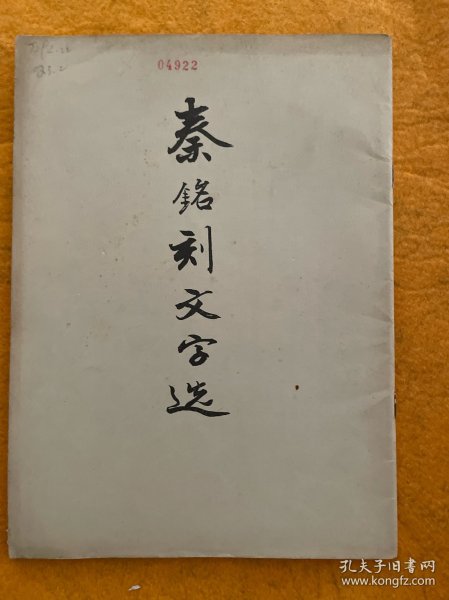 04922
秦銘刻文字选
孔夫子旧书网
www.kongfz.com